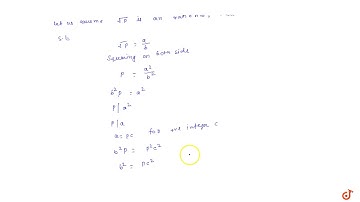 let us assume √p is an rational,
s.b
√p = a/b
Squaring on both side
p = a²/b²
b²p = a²
p/a²
p/a
a = pc for integer c
b²p = p²c²
b² = pc²